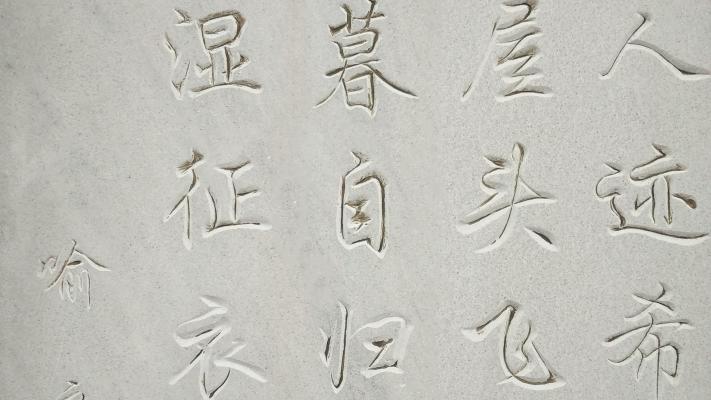 人迹希
屋头飞
暮自归
湿征衣
喻